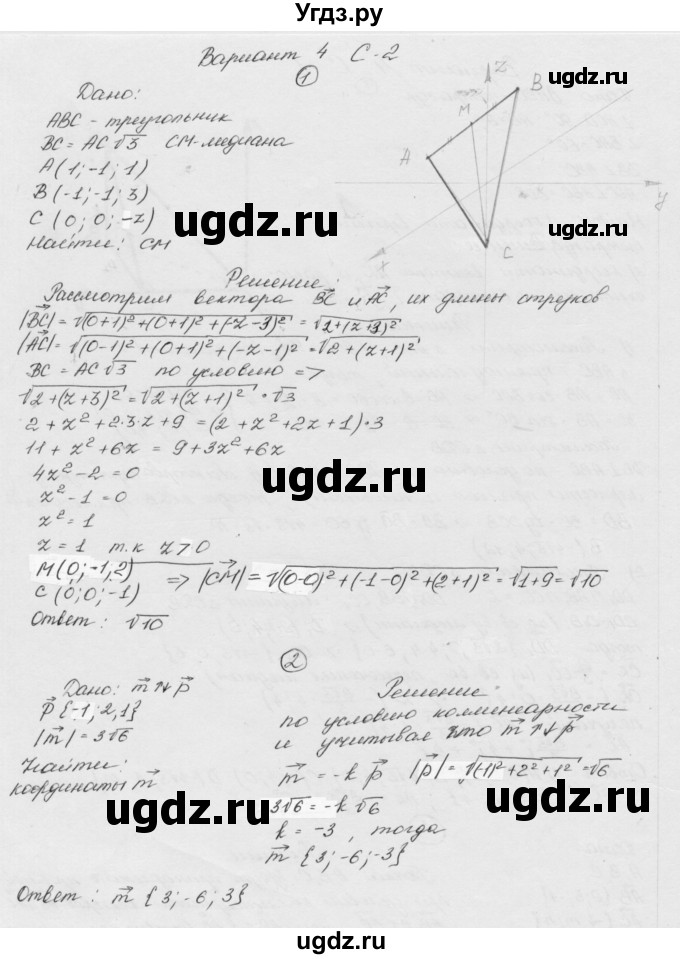 Угдз.ру
Вариант 4 С-2
1
Дано:
ABC - треугольник
BC = AC√3 CM-медиана
A (1; -1; 1)
B (-1; -1; 3)
C (0; 0; -z)
Найти: CM
z
B
M
A
y
C
x
ugdz.ru
ugdz.ru
ugdz.ru
Решение:
Рассмотрим вектора BC и AC, их длины отрезков
|BC| = √(0+1)²+(0+1)²+(-z-3)² = √2+(z+3)²
|AC| = √(0-1)²+(0+1)²+(-z-1)² = √2+(z+1)²
BC = AC√3 по условию =>
√2+(z+3)² = √2+(z+1)² · √3
2 + z² + 2·3·z + 9 = (2 + z² + 2z + 1)·3
11 + z² + 6z = 9 + 3z² + 6z
4z² - 2 = 0
z² - 1 = 0
z² = 1
z = 1 т.к z > 0
M (0; -1; 2)
C (0; 0; -1)
=> |CM| = √(0-0)²+(-1-0)²+(2+1)² = √1+9 = √10
Ответ: √10
ugdz.ru
ugdz.ru
ugdz.ru
2
Дано: m↑↓p
p {-1; 2; 1}
|m| = 3√6
Найти:
координаты m
Решение:
по условию коллинеарности
и учитывая что m↑↓p
m = -k p |p| = √(-1)²+2²+1² = √6
3√6 = -k √6
k = -3, тогда
m {3; -6; -3}
Ответ: m {3; -6; 3}
ugdz.ru
ugdz.ru
ugdz.ru
ugdz.ru
ugdz.ru